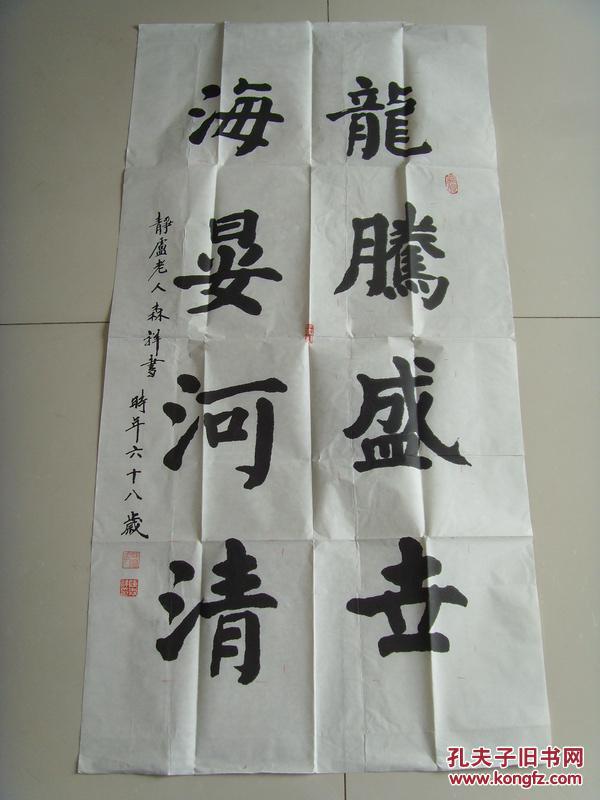 龍騰盛世
海晏河清
靜盧老人森祥書 時年六十八歲
孔夫子旧书网
www.kongfz.com